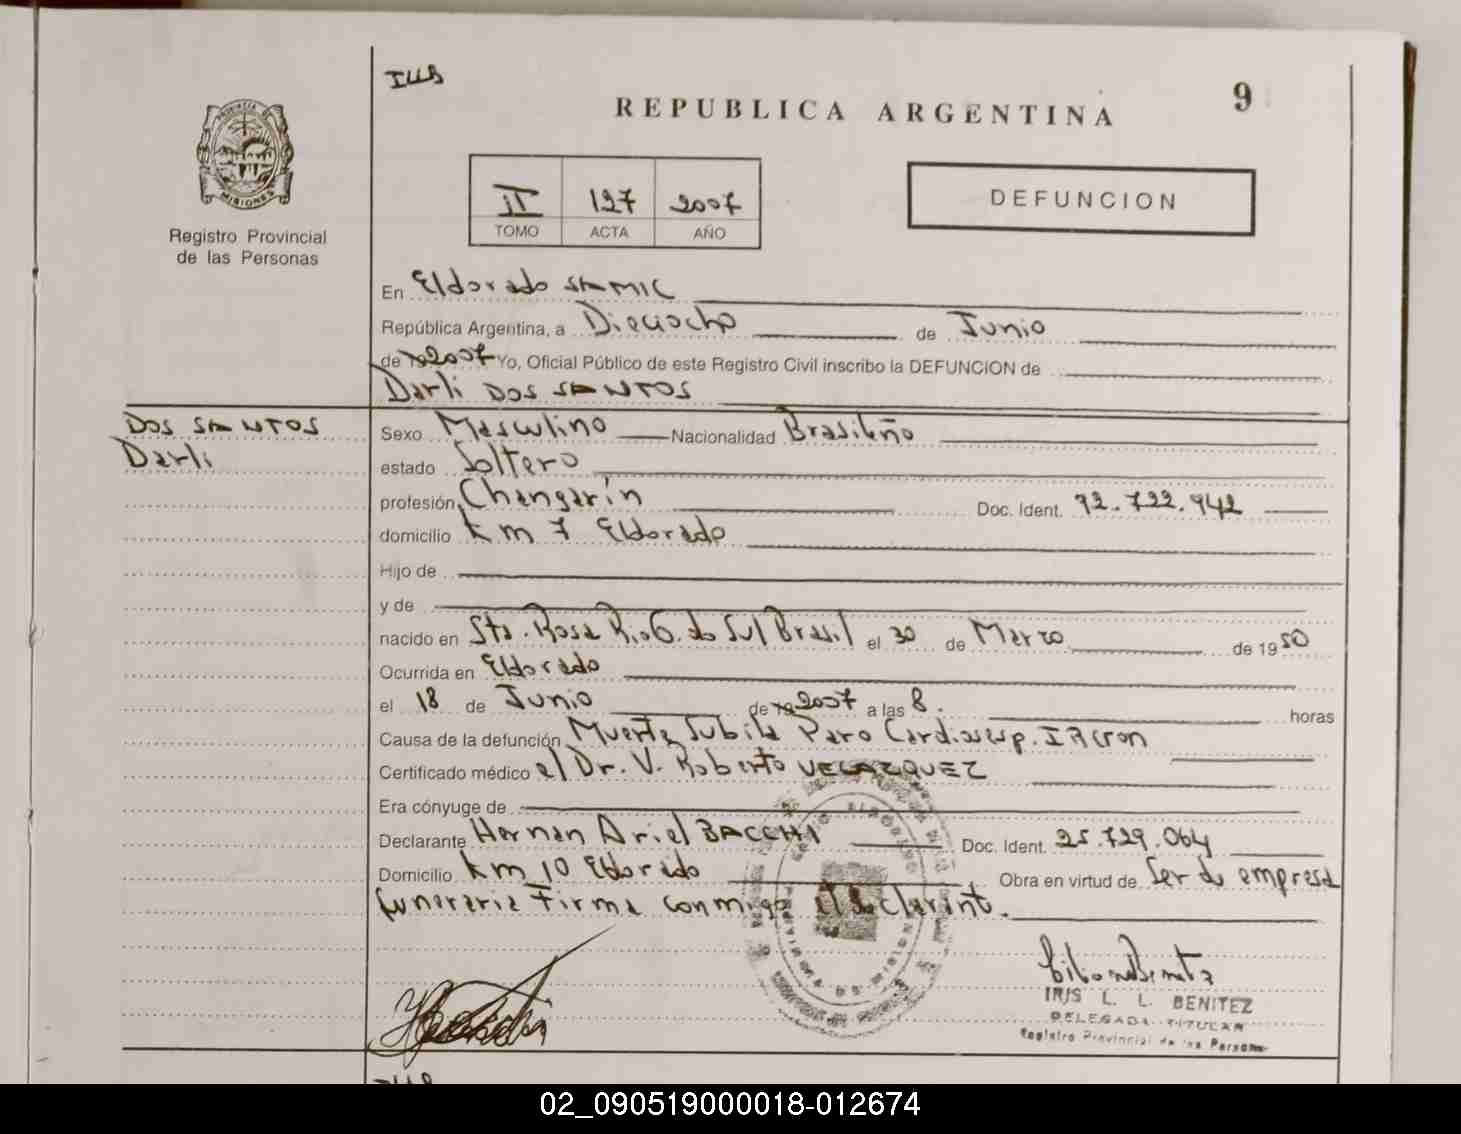 ILLB
REPUBLICA ARGENTINA
9
PROVINCIA DE
MISIONES
Registro Provincial
de las Personas
II 127 2007
TOMO ACTA AÑO
DEFUNCION
En Eldorado SAMIC
República Argentina, a Dieciocho de Junio
de 2007 Yo, Oficial Público de este Registro Civil inscribo la DEFUNCION de
Darli DOS SANTOS
DOS SANTOS
Darli
Sexo Masculino Nacionalidad Brasileño
estado Soltero
profesión Changarín Doc. Ident. 92.722.942
domicilio Km 7 Eldorado
Hijo de
y de
nacido en Sta. Rosa Rio G. do Sul Brasil el 30 de Marzo de 1950
Ocurrida en Eldorado
el 18 de Junio de 2007 a las 8. horas
Causa de la defunción Muerte Subita Paro Cardioresp.
Certificado médico el Dr. V. Roberto VELAZQUEZ
Era cónyuge de
Declarante Hernan Ariel BACCHI Doc. Ident. 25.729.064
Domicilio Km 10 Eldorado Obra en virtud de Ser de empresa
funeraria Firma conmigo el declarante.
IRIS L. L. BENITEZ
DELEGADA TITULAR
Registro Provincial de las Personas
02_090519000018-012674